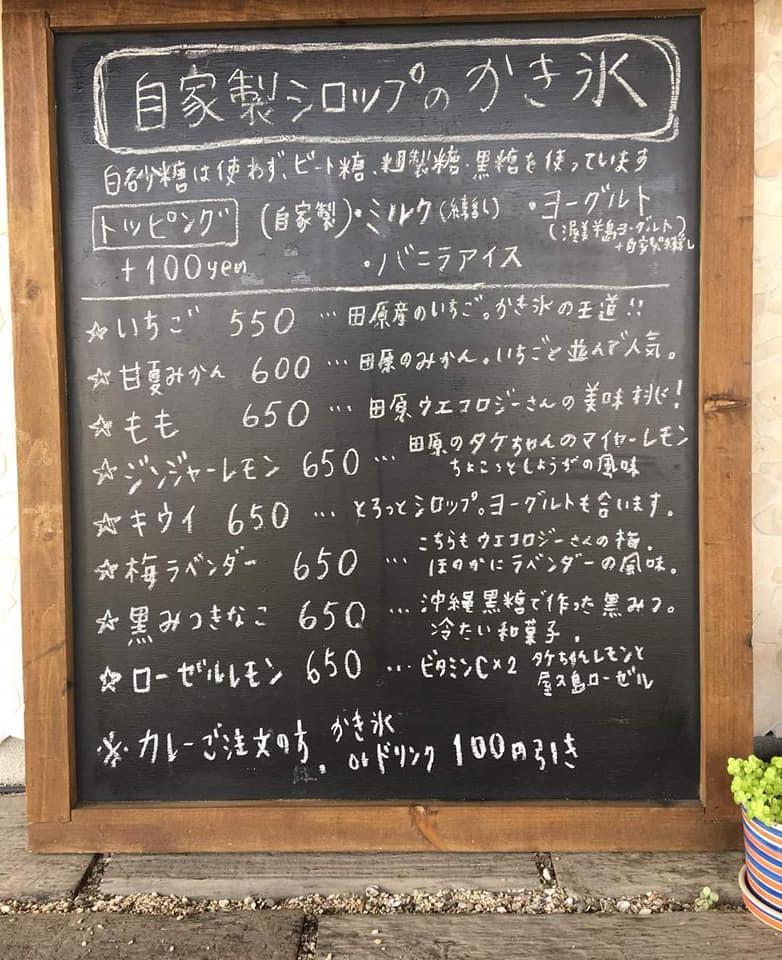 自家製シロップのかき氷
白砂糖は使わず、ビート糖、粗製糖、黒糖を使っています
トッピング (自家製)・ミルク(練乳) ・ヨーグルト
(渥美半島ヨーグルト)
+100yen ・バニラアイス
☆いちご 550 … 田原産のいちご。かき氷の王道!!
☆甘夏みかん 600 … 田原のみかん。いちごと並んで人気。
☆もも 650 … 田原ウエコロジーさんの美味桃!
☆ジンジャーレモン 650 … 田原のタケちゃんのマイヤーレモン
ちょこっとしょうがの風味
☆キウイ 650 … とろっとシロップ。ヨーグルトも合います。
☆梅ラベンダー 650 … こちらもウエコロジーさんの梅。
ほのかにラベンダーの風味。
☆黒みつきなこ 650 … 沖縄黒糖で作った黒みつ。
冷たい和菓子。
☆ローゼルレモン 650 … ビタミンC×2 タケちゃんレモンと
屋久島ローゼル
※カレーご注文の方、かき氷
orドリンク 100円引き